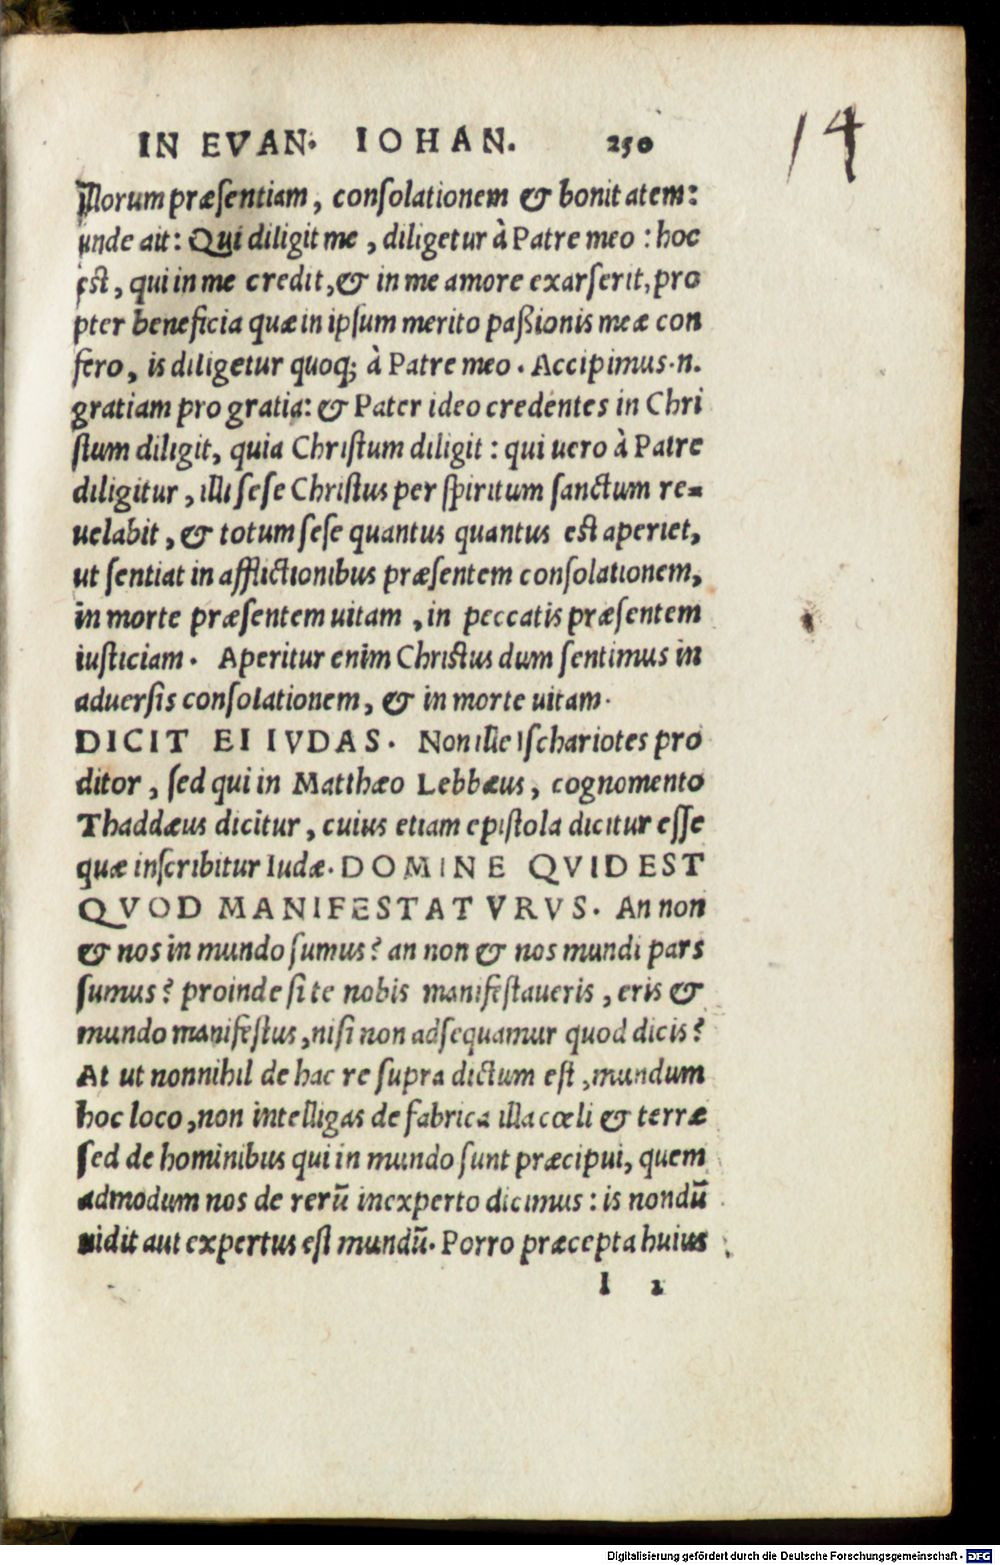 IN EVAN. IOHAN. 250
14
illorum præsentiam, consolationem & bonitatem:
unde ait: Qui diligit me, diligetur à Patre meo: hoc
est, qui in me credit, & in me amore exarserit, pro
pter beneficia quæ in ipsum merito paßionis meæ con
fero, is diligetur quoq; à Patre meo. Accipimus.n.
gratiam pro gratia: & Pater ideo credentes in Chri
stum diligit, quia Christum diligit: qui uero à Patre
diligitur, illi sese Christus per spiritum sanctum re=
uelabit, & totum sese quantus quantus est aperiet,
ut sentiat in afflictionibus præsentem consolationem,
in morte præsentem uitam, in peccatis præsentem
iusticiam. Aperitur enim Christus dum sentimus in
aduersis consolationem, & in morte uitam.
DICIT EI IVDAS. Non ille Ischariotes pro
ditor, sed qui in Matthæo Lebbæus, cognomento
Thaddæus dicitur, cuius etiam epistola dicitur esse
quæ inscribitur Iudæ. DOMINE QVID EST
QVOD MANIFESTATVRVS. An non
& nos in mundo sumus? an non & nos mundi pars
sumus? proinde si te nobis manifestaueris, eris &
mundo manifestus, nisi non adsequamur quod dicis?
At ut nonnihil de hac re supra dictum est, mundum
hoc loco, non intelligas de fabrica illa cœli & terræ
sed de hominibus qui in mundo sunt præcipui, quem
admodum nos de rerū inexperto dicimus: is nondū
uidit aut expertus est mundū. Porro præcepta huius
I 2
Digitalisierung gefördert durch die Deutsche Forschungsgemeinschaft - DFG